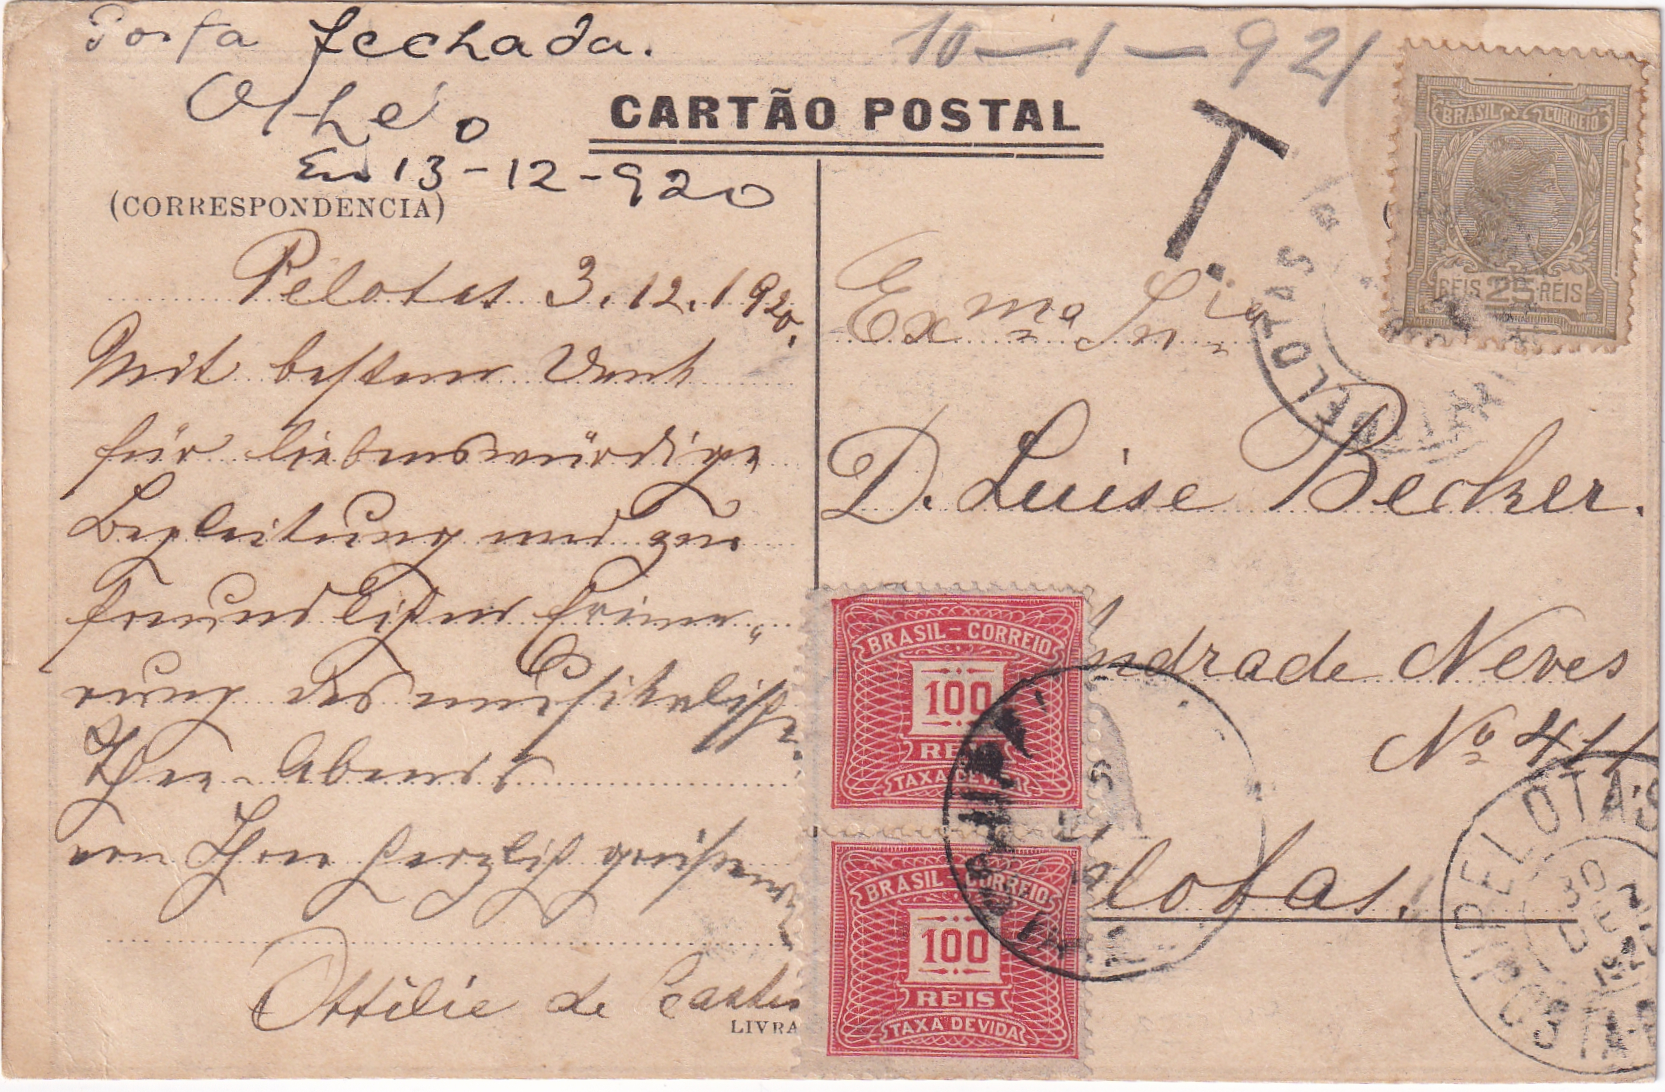 Porta fechada.
Olhé
Em 13-12-920
10-1-921
CARTÃO POSTAL
T.
(CORRESPONDENCIA)
Pelotas 3.12.1920.
Mit bestem Dank
für liebenswürdige
Begleitung und zur
freundlichen Erinne-
rung des musikalisch
Ihres Abends
von Ihrer herzlich grüßend
Ottilie de Castro
LIVRA
BRASIL CORREIO
REIS 25 REIS
PELOTAS
Exma Snra
D. Luise Becker.
Andrade Neves
No 411
Pelotas.
BRASIL-CORREIO
100
REIS
TAXA DEVIDA
BRASIL-CORREIO
100
REIS
TAXA DEVIDA
PELOTAS
30
DEZ